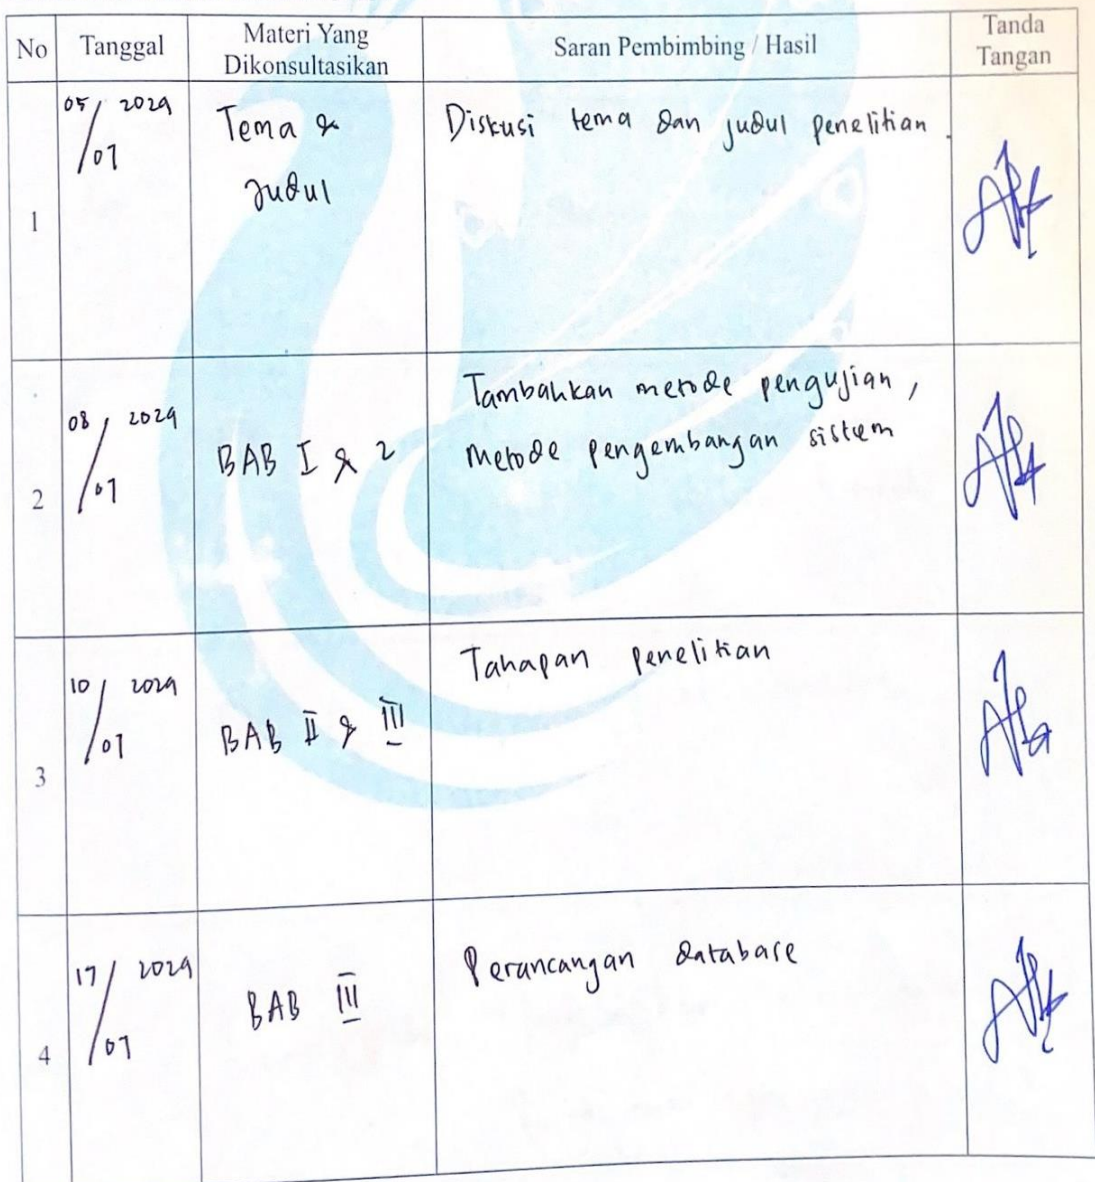 No Tanggal Materi Yang Dikonsultasikan Saran Pembimbing / Hasil Tanda Tangan
1 05/07 2024 Tema & Judul Diskusi tema dan judul penelitian.
2 08/07 2024 BAB I & 2 Tambahkan metode pengujian,
metode pengembangan sistem
3 10/07 2024 BAB II & III Tahapan penelitian
4 17/07 2024 BAB III Perancangan database